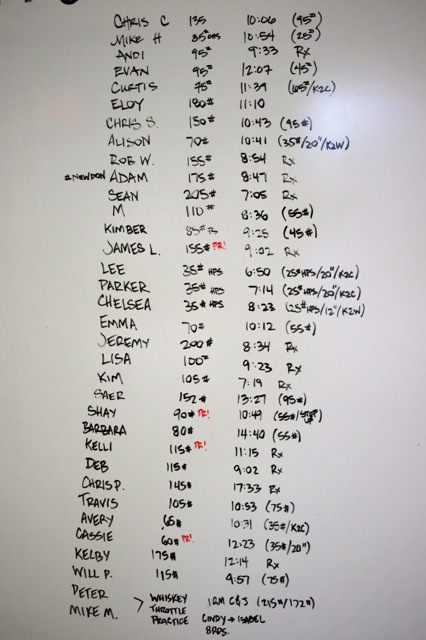 CHRIS C 135 10:06 (95#)
MIKE H 85# 10:54 (25#)
ANDI 95# 9:33 Rx
EVAN 95# 12:07 (45#)
CURTIS 75# 11:39 (65#/K2C)
ELOY 180# 11:10
CHRIS S. 150# 10:43 (95#)
ALISON 70# 10:41 (35#/20"/K2W)
ROB W. 155# 8:54 Rx
#NEWDON ADAM 175# 8:47 Rx
SEAN 205# 7:05 Rx
M 110# 8:36 (55#)
KIMBER 85# 9:25 (45#)
JAMES L. 155# PR! 9:02 Rx
LEE 35# HPS 6:50 (25# HPS/20"/K2C)
PARKER 35# HPS 7:14 (25# HPS/20"/K2C)
CHELSEA 35# HPS 8:23 (25# HPS/12"/K2W)
EMMA 70# 10:12 (55#)
JEREMY 200# 8:34 Rx
LISA 100# 9:23 Rx
KIM 105# 7:19 Rx
SAER 152# 13:27 (95#)
SHAY 90# PR! 10:49 (55#/STEP UP)
BARBARA 80# 14:40 (55#)
KELLI 115# PR! 11:15 Rx
DEB 115# 9:02 Rx
CHRIS P. 145# 17:33 Rx
TRAVIS 105# 10:53 (75#)
AVERY 65# 10:31 (35#/K2C)
CASSIE 60# PR! 12:23 (35#/20")
KELBY 175# 12:14 Rx
WILL P. 115# 9:57 (75#)
PETER
MIKE M. > WHISKEY THROTTLE PRACTICE
1RM C&J (215#/172#)
CINDY → ISABEL
8RDS.